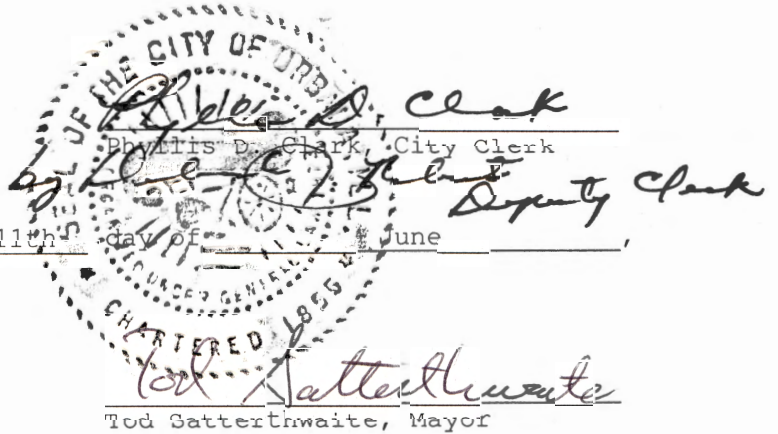 SEAL OF THE CITY OF URBANA
CHARTERED 1855
Phyllis D. Clark
Phyllis D. Clark, City Clerk
by Deputy Clerk
11th day of June ,
Tod Satterthwaite
Tod Satterthwaite, Mayor